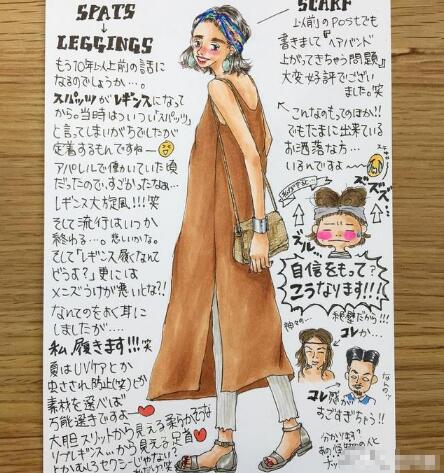 SPATS
↓
LEGGINGS
もう10年以上前の話に
なるのでしょうか…。
スパッツがレギンスになって
から。当時はついつい「スパッツ」
と言ってしまいがちでしたが
定着するもんですね〜
アパレルで働いていた頃
だったので、すごかったなぁ…
レギンス大旋風!!!笑
そして流行はいつか
終わる…。悲しいかな。
そして「レギンス履くなんて
どうよ?」更には
メンズうけが悪いとな?!
なんてのをよく耳に
しましたが…。
私履きます!!!笑
夏はUVケアとか
虫さされ防止(笑)とか
素材を選べば
万能選手ですよ〜
大胆スリットから見える柔らかそうな
リブレギンス…から見える足首
SCARF
以前のpostでも
書きました『ヘアバンド
上がってきちゃう問題』
大変好評でござい
ました。笑
こんなのもってのほか!!
でもたまに出来ている
お洒落な方…
いるんですよ
ズズズ…
自信をもって?
こうなります!!!
絶壁だから!!!
神々の…
コレか…
なんのっ
コレ感が
すごすぎちゃう!!
分かります?